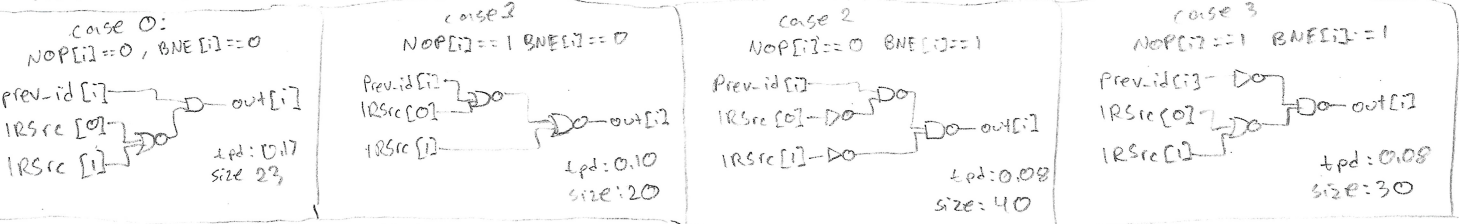 case 0:
NOP[i]==0, BNE[i]==0
prev_id[i]
out[i]
IRSrc[0]
IRSrc[1]
tpd: 0.17
size 23
case 1
NOP[i]==1 BNE[i]==0
Prev_id[i]
IRSrc[0]
out[i]
IRSrc[1]
tpd: 0.10
size: 20
case 2
NOP[i]==0 BNE[i]==1
Prev_id[i]
IRSrc[0]
out[i]
IRSrc[1]
tpd: 0.08
size: 40
case 3
NOP[i]==1 BNE[i]=1
Prev_id[i]
IRSrc[0]
out[i]
IRSrc[1]
tpd: 0.08
size: 30